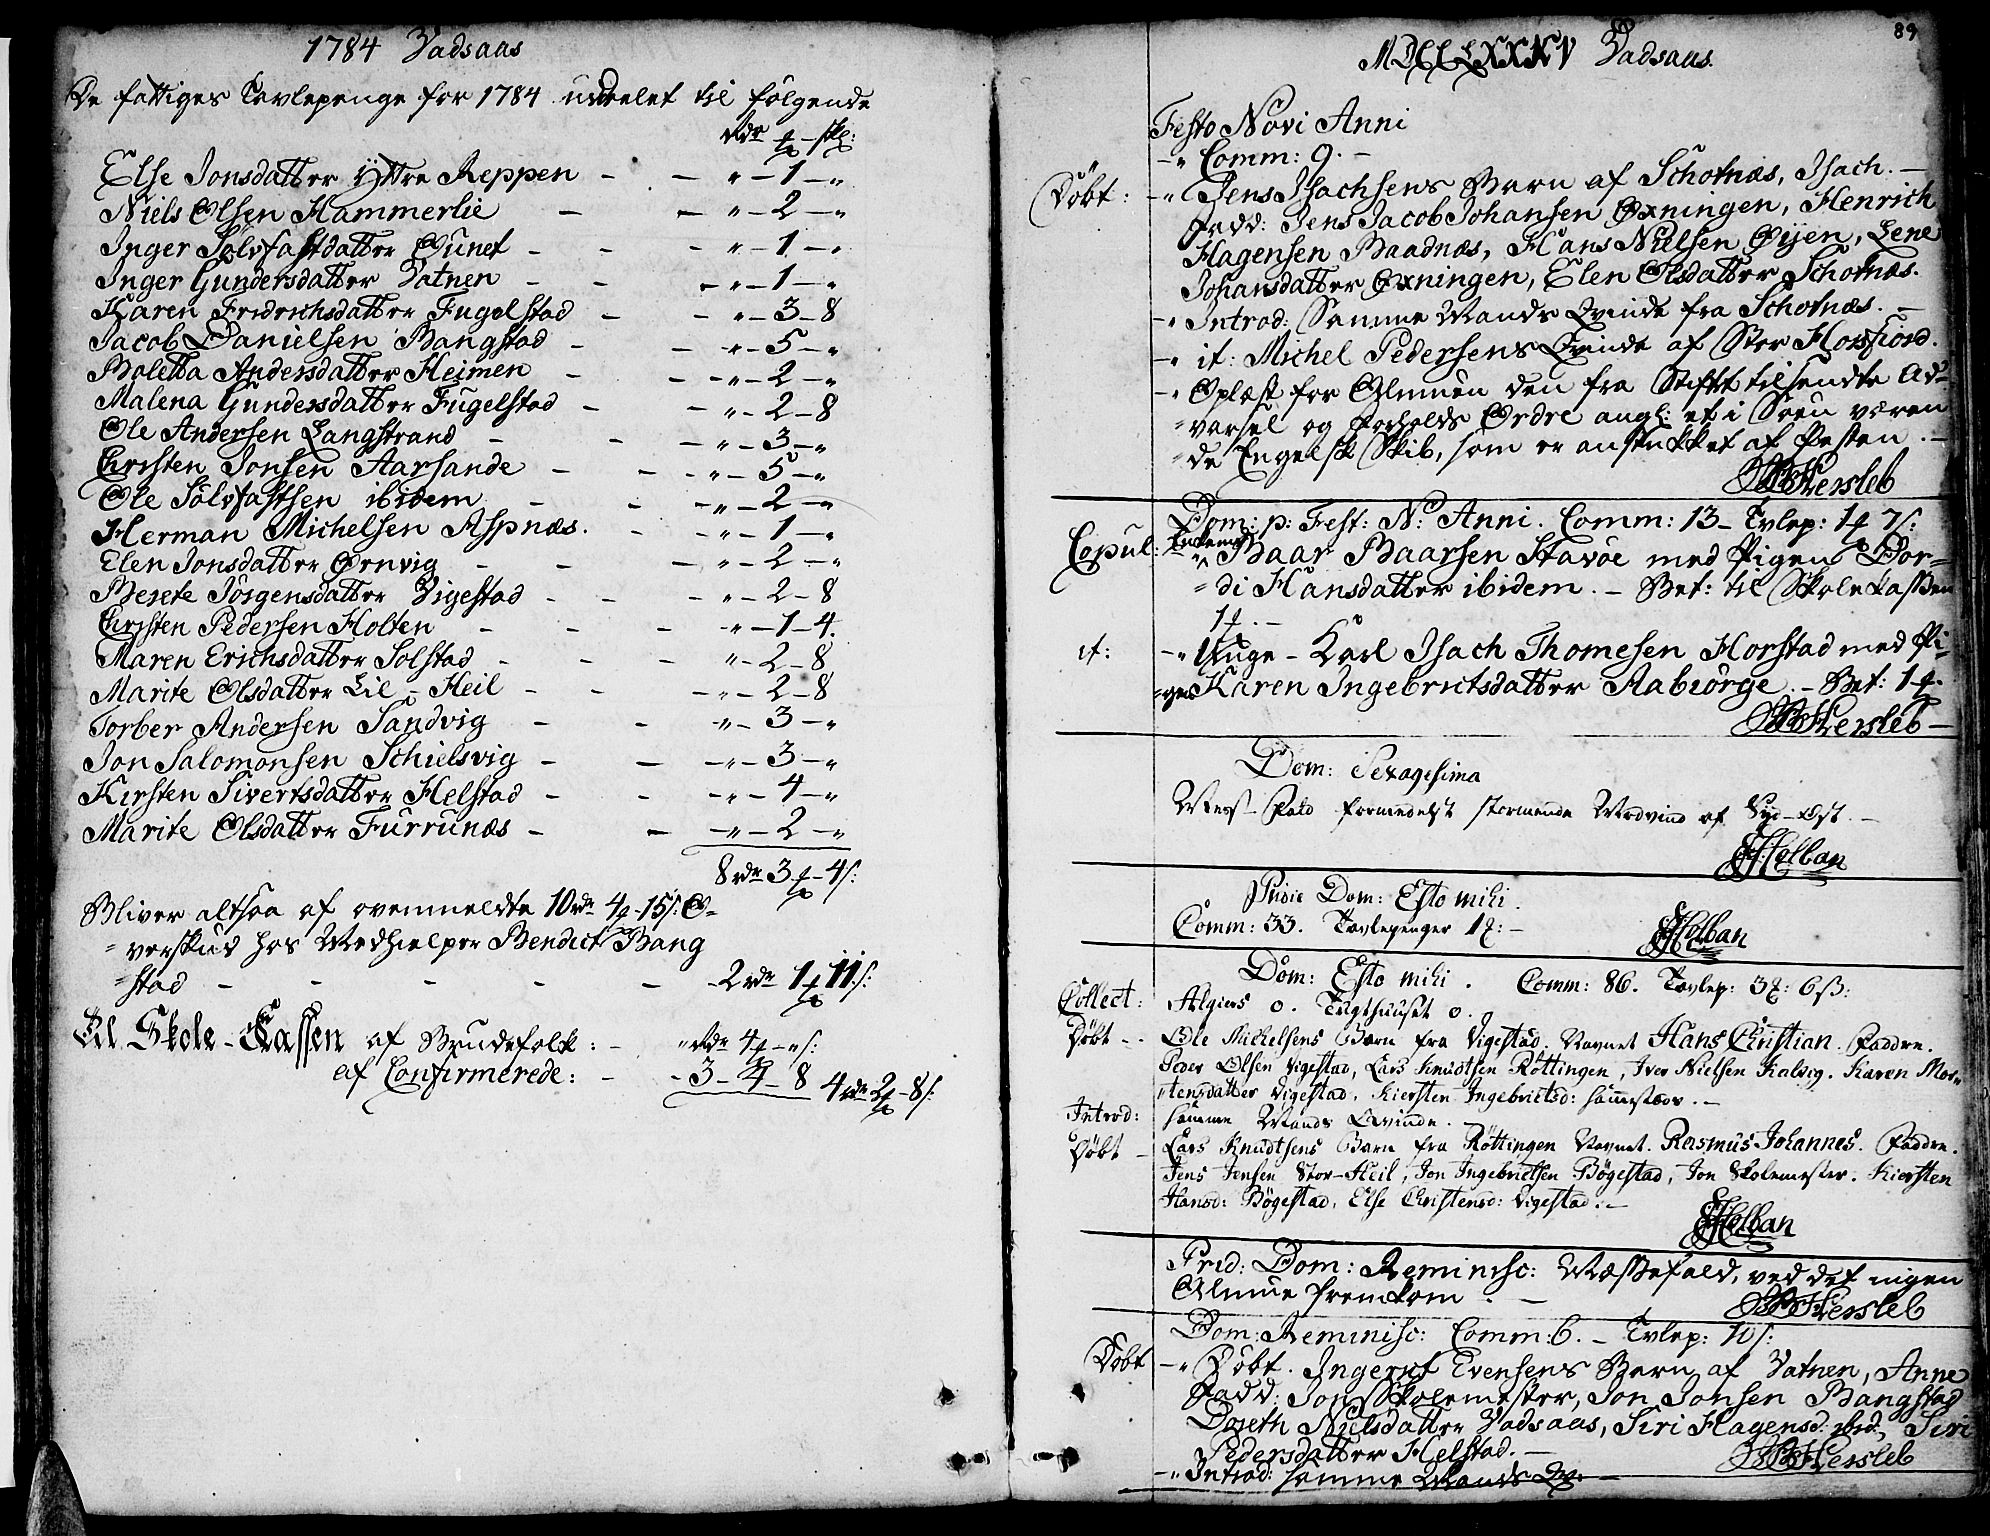 1784 Vadsaas
De fattiges Tavlepenge for 1784 uddelet til følgende
rdr - skl:
Else Jonsdatter Yttre Reppen - - " - 1 - "
Niels Olsen Hammerlie - - " - 2 - "
Inger Sølvfastdatter Ounet - - " - 1 - "
Inger Gundersdatter Vatnen - - " - 1 - "
Karen Fridrichsdatter Fugelstad - - " - 3 - 8
Jacob Danielsen Bangstad - - " - 5 - "
Boletta Andersdatter Heimen - - " - 2 - "
Malena Gundersdatter Fugelstad - - " - 2 - 8
Ole Andersen Langstrand - - " - 3 - "
Christen Jonsen Aarsande - - " - 5 - "
Ole Sølvfastsen ibidem - - " - 2 - "
Herman Michelsen Aspnæs. - - " - 1 - "
Elen Jonsdatter Ørnvig - - " - 2 - "
Berete Jørgensdatter Vigestad - - " - 2 - 8
Christen Pedersen Holten - - " - 1 - 4.
Maren Erichsdatter Solstad - - " - 2 - 8
Marite Olsdatter Lil-Heil - - " - 2 - 8
Torber Andersen Sandvig - - " - 3 - "
Jon Salomonsen Schielsvig - - " - 3 - "
Kirsten Sivertsdatter Helstad - - " - 4 - "
Marite Olsdatter Furrunæs - - " - 2 - "
8 rdr 3 - 4 s:
Bliver altsaa af ovenmeldte 10 rdr 4 - 15 s: O-
verskud hos Medhielper Bendict Bang
stad - - - - - 2 rdr 1 11 s:
Til Skole-Cassen af Brudefolk: - " rdr 4 - " s:
af Confirmerede: - - 3 - 4 - 8 4 rdr 2 - 8 s:
89
MDCCLXXXV Vadsaas.
Festo Novi Anni
- " Comm: 9. -
Døbt: - " Jens Isachsens Barn af Schotnæs, Isach. -
Fadd: Jens Jacob Johansen Oxningen, Henrich
Hagensen Baadnæs, Hans Nielsen Øijen, Lene
Johansdatter Oxningen, Elen Olsdatter Schotnæs.
- " Introd: Samme Mands Qvinde fra Schotnæs. -
- " it: Michel Pedersens Qvinde af Stor Horsfiord.
- " Oplæst for Almuen den fra Stiftet tilsendte Ad-
varsel og Forholds Ordre angl: et i Søen væren
de Engelsk Skib, som er anstukket af Pesten. -
Hersleb
Dom: p: Fest: N: Anni. Comm: 13 - Tvlep: 1 7 s:
Copul: Enkemd " Baar Baarsen Stavøe med Pigen Dor-
di Hansdatter ibidem. - Bet: til Skolekassen
1 . -
it: - " Unge-Karl Isach Thomesen Horstad med Pi-
gen Karen Ingebrictsdatter Aabiørge. - Bet: 1 .
Hersleb -
Dom: Sexagesima
Mess-Fald formedelst stormende Modvind af Syd-Ost. -
Holban
Pridie Dom: Esto mihi.
Comm: 33. Tavlepenger 1 : -
Holban
Dom: Esto mihi. Comm: 86. Tavlep: 3 : 6 ß:
Collect: Algiers 0. Tugthuuset 0.
Døbt - - Ole Michelsens Barn fra Vigestad. Navnet Hans Christian. Faddre.
Peder Olsen Vigestad, Lars Knudtsen Røttingen, Iver Nielsen Kalvig. Karen Mor-
tensdatter Vigestad, Kiersten Ingebrictsd: sammesteds. -
Introd: samme Mands Qvinde.
Døbt - Lars Knudtsens Barn fra Røttingen Navnet. Rasmus Johannes. Faddre.
Jens Jensen Stor-Heil, Jon Ingebrictsen Bøgestad, Jon Skolemester. Kiersten
Hansd: Bøgestad, Else Christensd: Vigestad. -
Holban
Prid: Dom: Reminisc: Messefald, ved det ingen
Almue fremkom. -
Hersleb
Dom: Reminisc: Comm: 6. - Tvlep: 10 s:
Døbt - " Døbt. Ingerut Evensens Barn af Vatnen, Anne
Fadd: Jon Skolemester, Jon Jonsen Bangstad
Doreth Nielsdatter Vadsaas, Siri Hagensd: ibid, Siri
Pedersdatter Helstad. -
Hersleb
- " Introd: samme Mands Qv: -